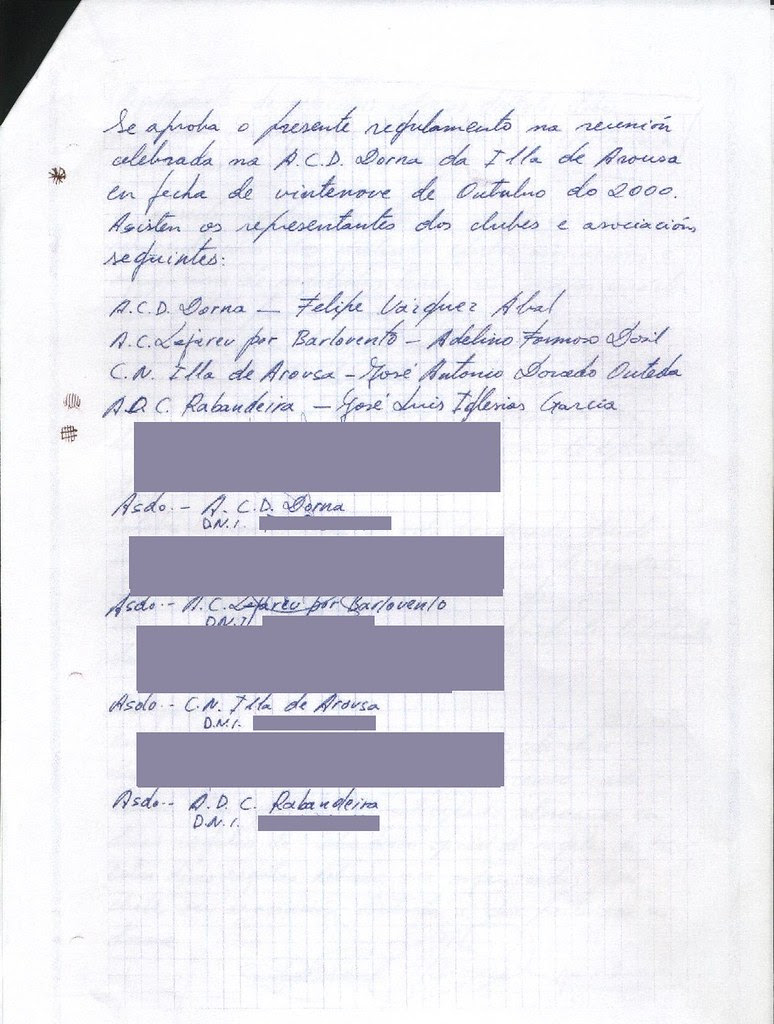 Se aproba o presente regulamento na reunión
celebrada na A.C.D. Dorna da Illa de Arousa
en fecha de vintenove de Outubro do 2000.
Asisten os representantes dos clubes e asociacións
seguintes:
A.C.D. Dorna — Felipe Vázquez Abal
A.C. Lajareu por Barlovento — Adelino Formoso Dosil
C.N. Illa de Arousa — José Antonio Dovedo Outeda
A.D.C. Rabandeira — José Luis Iglesias García
Asdo.- A.C.D. Dorna
D.N.I.
Asdo.- A.C. Lajareu por Barlovento
D.N.I.
Asdo.- C.N. Illa de Arousa
D.N.I.
Asdo.- A.D.C. Rabandeira
D.N.I.